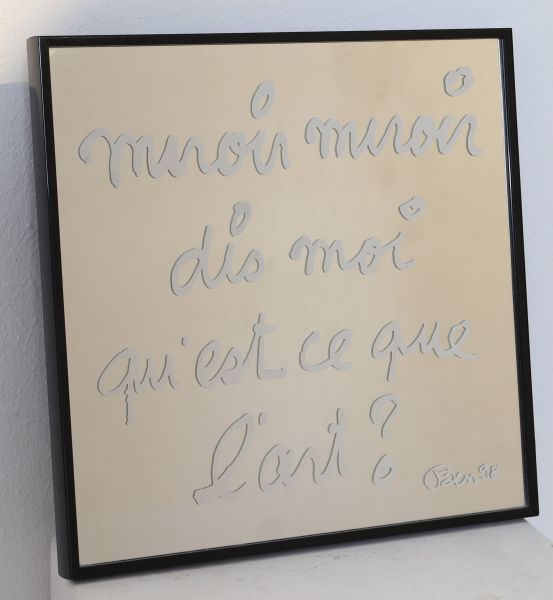 miroir miroir
dis moi
qu'est ce que
l'art ?
Ben 98